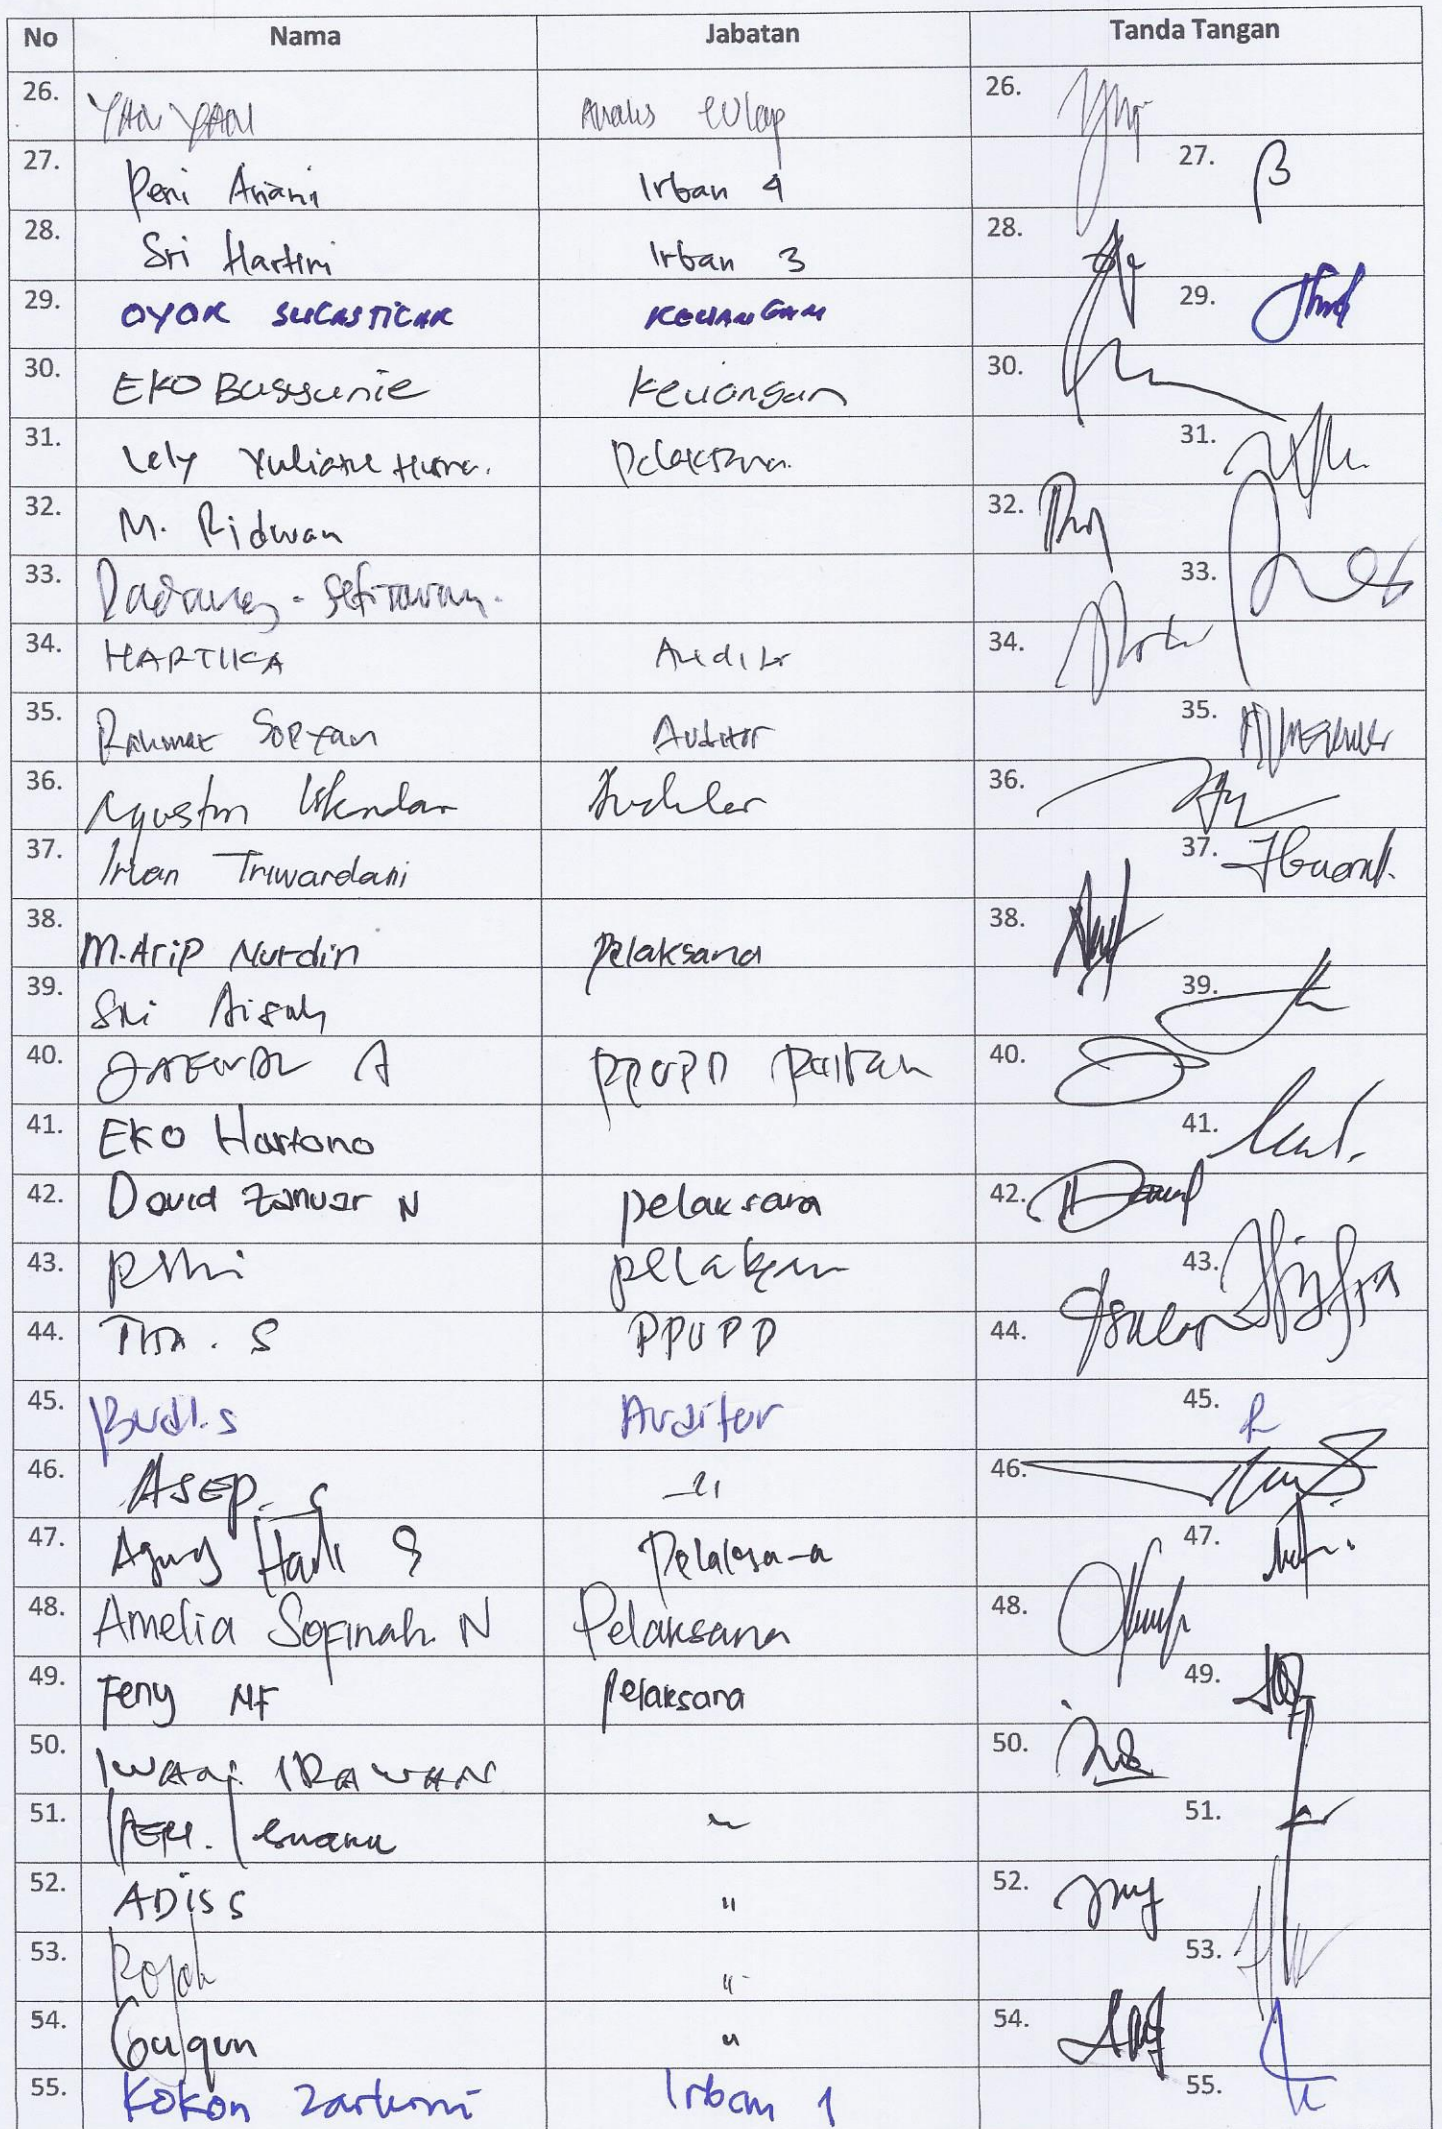 No Nama Jabatan Tanda Tangan
26. YAN YAN 26.
27. Peni Ariani Irban 4 27.
28. Sri Hartini Irban 3 28.
29. OYOK KEUANGAN 29.
30. EKO Keuangan 30.
31. Lely Pelaksana. 31.
32. M. Ridwan 32.
33. Dadang. Setiawan. 33.
34. HARTIKA Auditor 34.
35. Rahmat Sopyan Auditor 35.
36. Agustin Iskandar Auditor 36.
37. Irlan Triwardani 37.
38. M.Arip Nurdin Pelaksana 38.
39. Sri Aisah 39.
40. A PPUPD 40.
41. EKO Hartono 41.
42. David Zanuar N pelaksana 42.
43. 43.
44. S PPUPD 44.
45. Budi.s Auditor 45.
46. ASEP. S 46.
47. Agung Hadi S Pelaksana 47.
48. Amelia Sofinah. N Pelaksana 48.
49. Feny NF Pelaksana 49.
50. IWAN IRAWAN 50.
51. 51.
52. ADIS S " 52.
53. Rojak " 53.
54. Gugun " 54.
55. Kokon Irban 1 55.